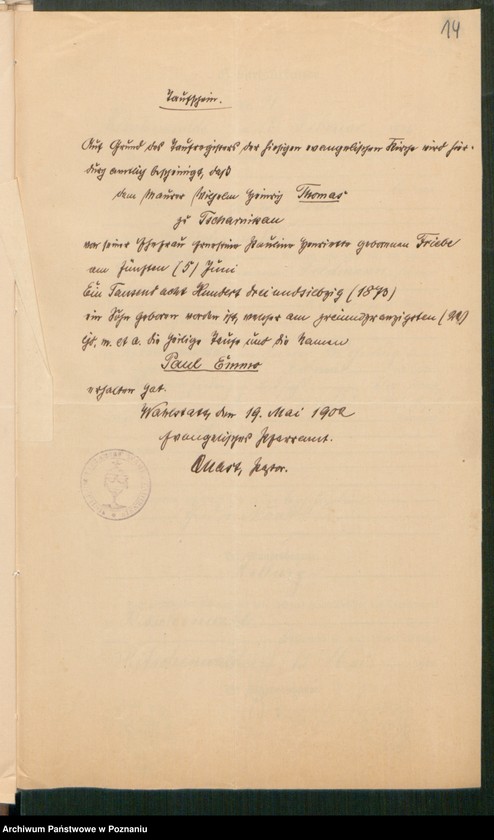 14
Taufschein.
Auf Grund des Taufregisters der hiesigen evangelischen Kirche wird hier-
durch amtlich bescheinigt, daß
dem Maurer Wilhelm Heinrich Thomas
zu Tscharnikau
von seiner Ehefrau Ernestine Pauline Henriette geborenen Friebe
am fünften (5) Juni
Ein Tausend acht Hundert dreiundsiebzig (1873)
ein Sohn geboren worden ist, welcher am zweiundzwanzigsten (22)
m. et a. die heilige Taufe und die Namen
Paul Emmo
erhalten hat.
Wahlstatt, den 19. Mai 1902
Evangelisches Pfarramt.
Quast, Pastor.
Archiwum Państwowe w Poznaniu